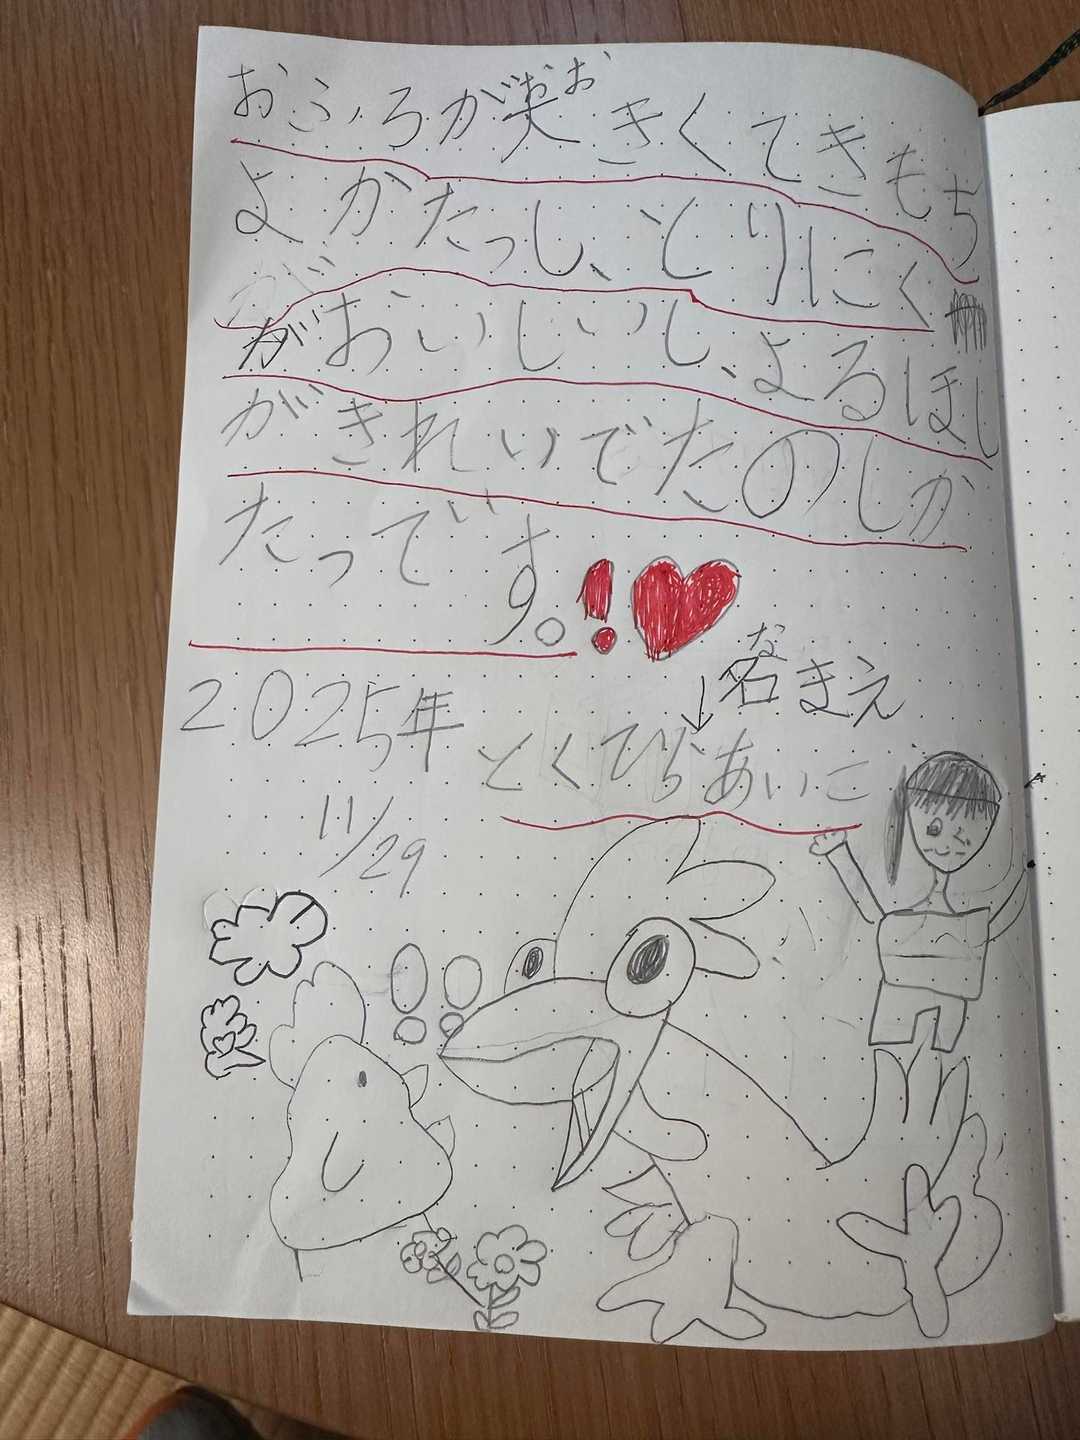 おお
おふろが大きくてきもち
よかたっし、とりにく
がおいしいし、よるほし
がきれいでたのしか
たっです。!♥
な
名まえ
↓
2025年
とくひらあいこ
11/29